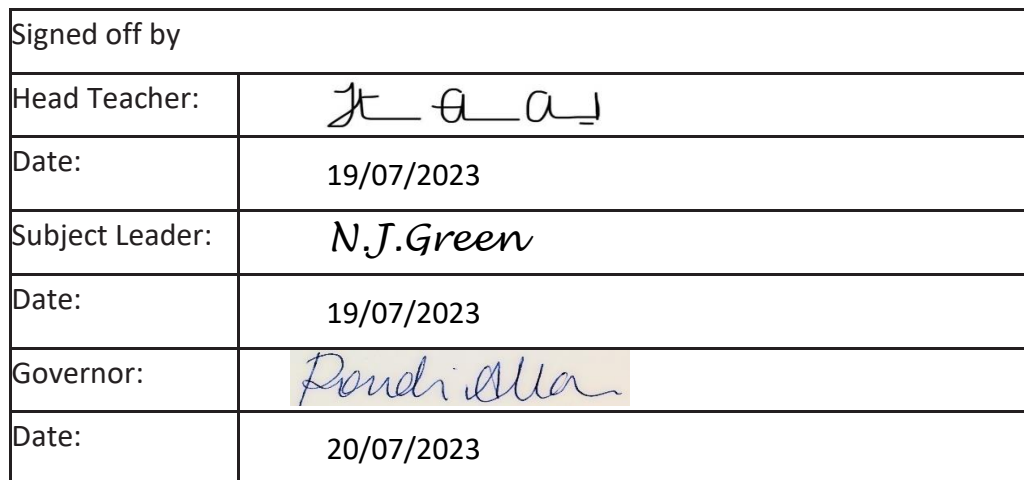 Signed off by
Head Teacher:
Date: 19/07/2023
Subject Leader: N.J.Green
Date: 19/07/2023
Governor:
Date: 20/07/2023